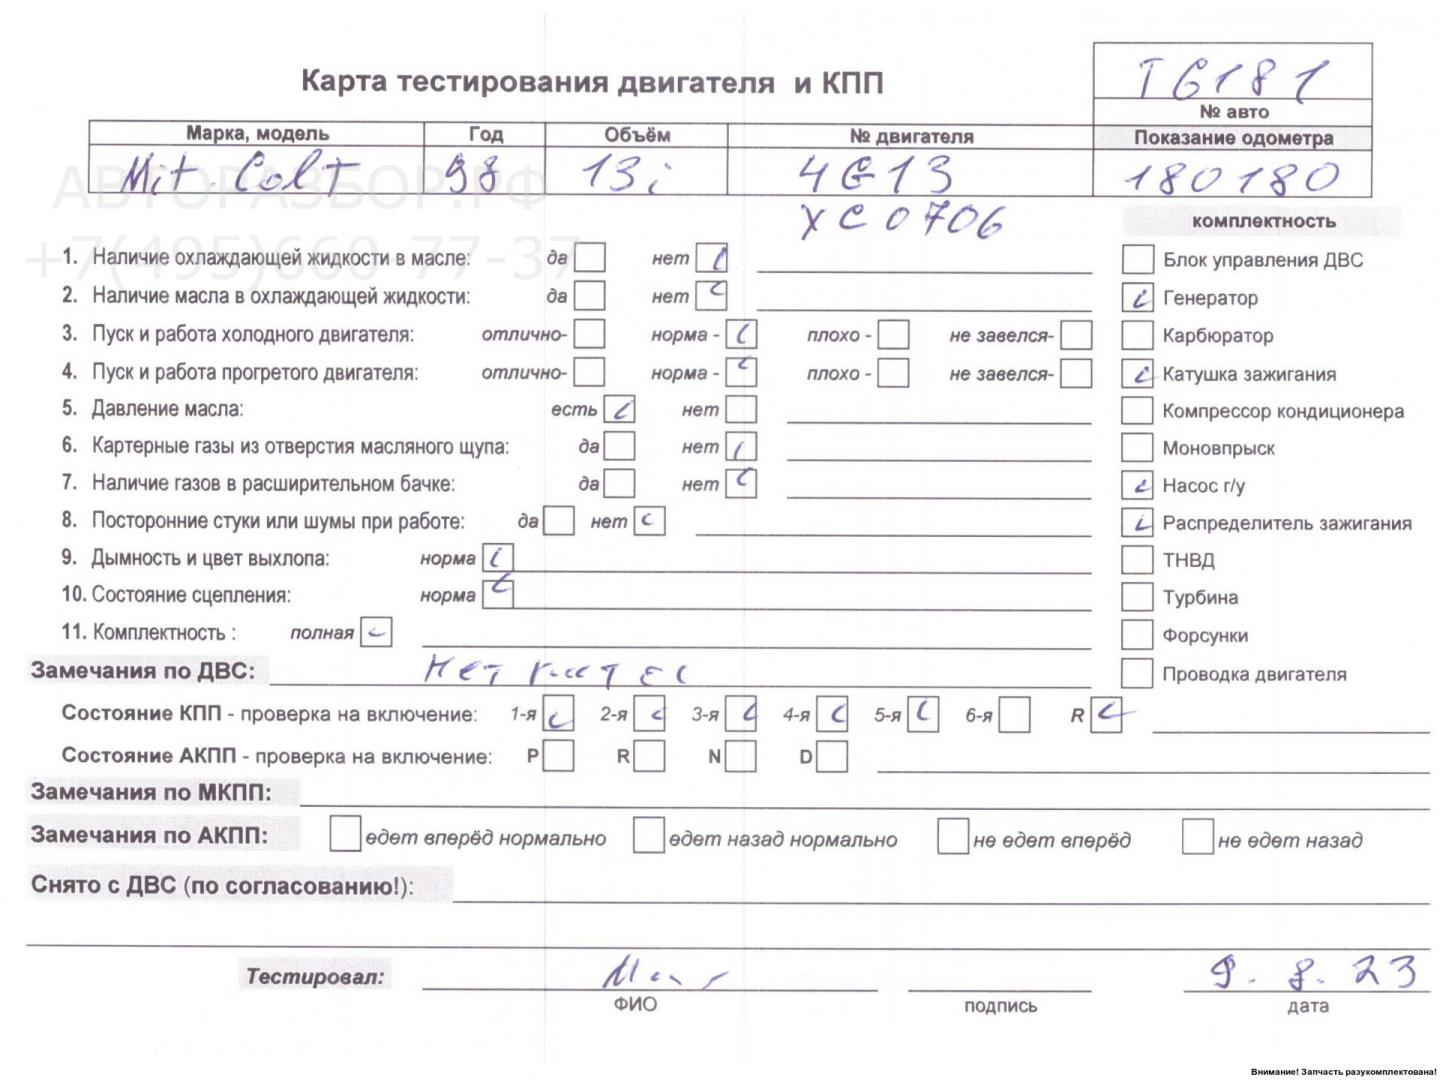 Карта тестирования двигателя и КПП
T6181
№ авто
Марка, модель Год Объём № двигателя Показание одометра
Mit. Colt 98 13i 4G13 180180
XC0706
АВТОРАЗБОР.РФ
+7(495)660-77-37
комплектность
1. Наличие охлаждающей жидкости в масле: да нет Блок управления ДВС
2. Наличие масла в охлаждающей жидкости: да нет Генератор
3. Пуск и работа холодного двигателя: отлично- норма - плохо - не завелся- Карбюратор
4. Пуск и работа прогретого двигателя: отлично- норма - плохо - не завелся- Катушка зажигания
5. Давление масла: есть нет Компрессор кондиционера
6. Картерные газы из отверстия масляного щупа: да нет Моновпрыск
7. Наличие газов в расширительном бачке: да нет Насос г/у
8. Посторонние стуки или шумы при работе: да нет Распределитель зажигания
9. Дымность и цвет выхлопа: норма ТНВД
10. Состояние сцепления: норма Турбина
11. Комплектность : полная Форсунки
Замечания по ДВС: нет Проводка двигателя
Состояние КПП - проверка на включение: 1-я 2-я 3-я 4-я 5-я 6-я R
Состояние АКПП - проверка на включение: P R N D
Замечания по МКПП:
Замечания по АКПП: едет вперёд нормально едет назад нормально не едет вперёд не едет назад
Снято с ДВС (по согласованию!):
Тестировал: 9.8.23
ФИО подпись дата
Внимание! Запчасть разукомплектована!